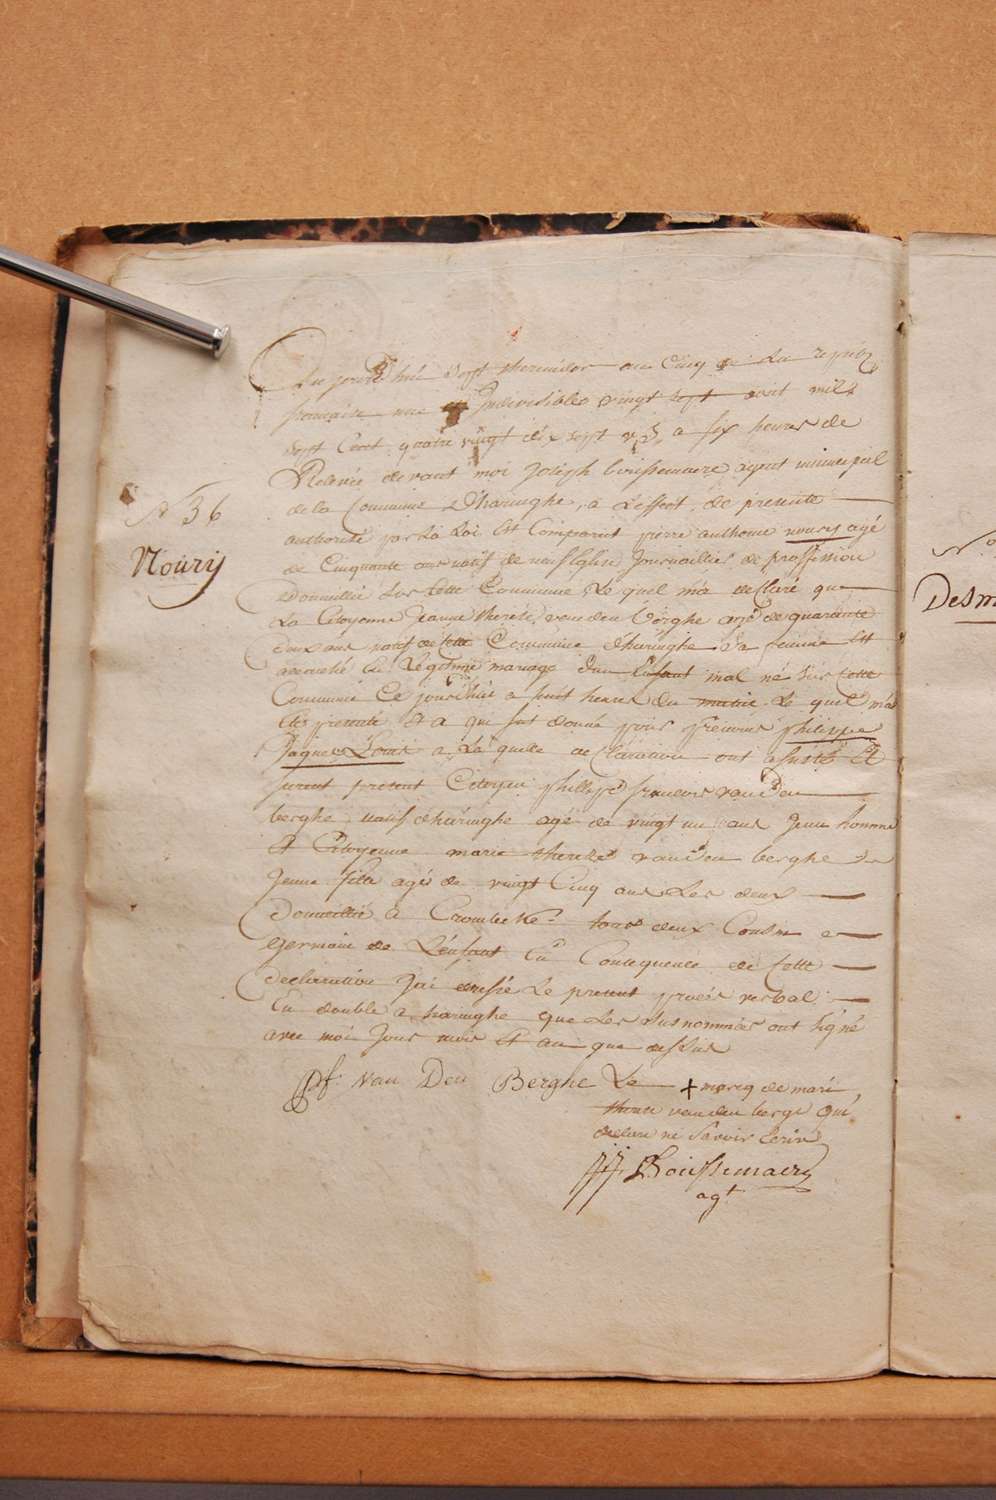 Au jourd'huie sept thermidor an Cinq de La republ
francaise une et Indivisible vingt sept aout mil
sept Cent quatre vingt dix sept v.s. a six heures de
Relevée devant moi Joseph boussemaere agent municipal
de la Commune d'haringhe, a L'effect, de presente
N° 36
authorité par La Loi Est Comparut pierre anthoine noury agé
Noury
de Cinquante ans natif de Journaillier de proffession
Domicillie sur Cette Commune, Le quel m'a declaré que
La Citoyenne Jeanne therese vanden berghe agé de quarante
Deux ans natif de Cette Commune d'haringhe Sa femme Est
accouché en Legitime mariage d'un Enfant mal né sur Cette
Commune Ce jourd'huie a huit heures du matin Le quel m'a
Eté presenté Et a qui fut donné pour prenoms philippe
Jaques Louis a La quelle declaration ont assisté Et
furent present Citoyen phillipe francois vanden
berghe natif d'haringhe agé de vingt un ans Jeune homme
Et Citoyenne marie therese vanden berghe
Jeune fille agée de vingt Cinq ans Les deux
Domicillié a Crombeke tous deux Cousin
germain de L'enfant En Consequence de Cette
declaration J'ai dressé Le present procés verbal
En double a haringhe que Les susnommées ont signé
avec moi Jour mois Et an que dessus
pf. van Den Berghe Le + marcq de mari
therese vanden berge qui
declare ne savoir Ecrire
JJ. Boussemaere
agt
N°
Desm